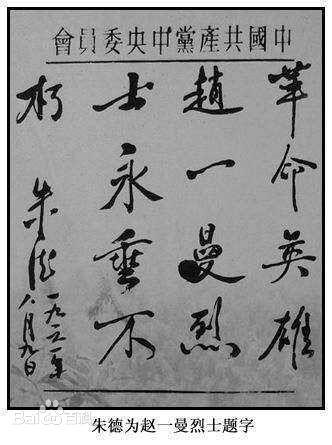 中國共產黨中央委員會
革命英雄
趙一曼烈
士永垂不
朽
朱德
一九六二年
八月九日
Bai百科
朱德为赵一曼烈士题字